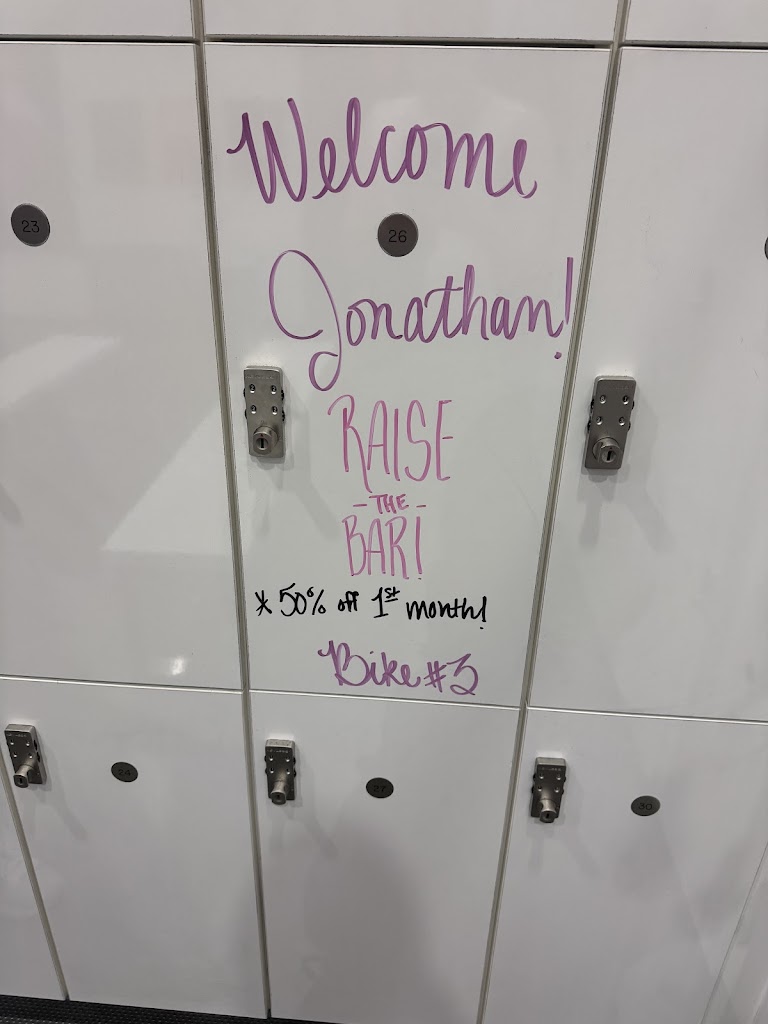 Welcome
23
26
Jonathan!
RAISE
- THE -
BAR!
* 50% off 1st month!
Bike #3
24
27
30